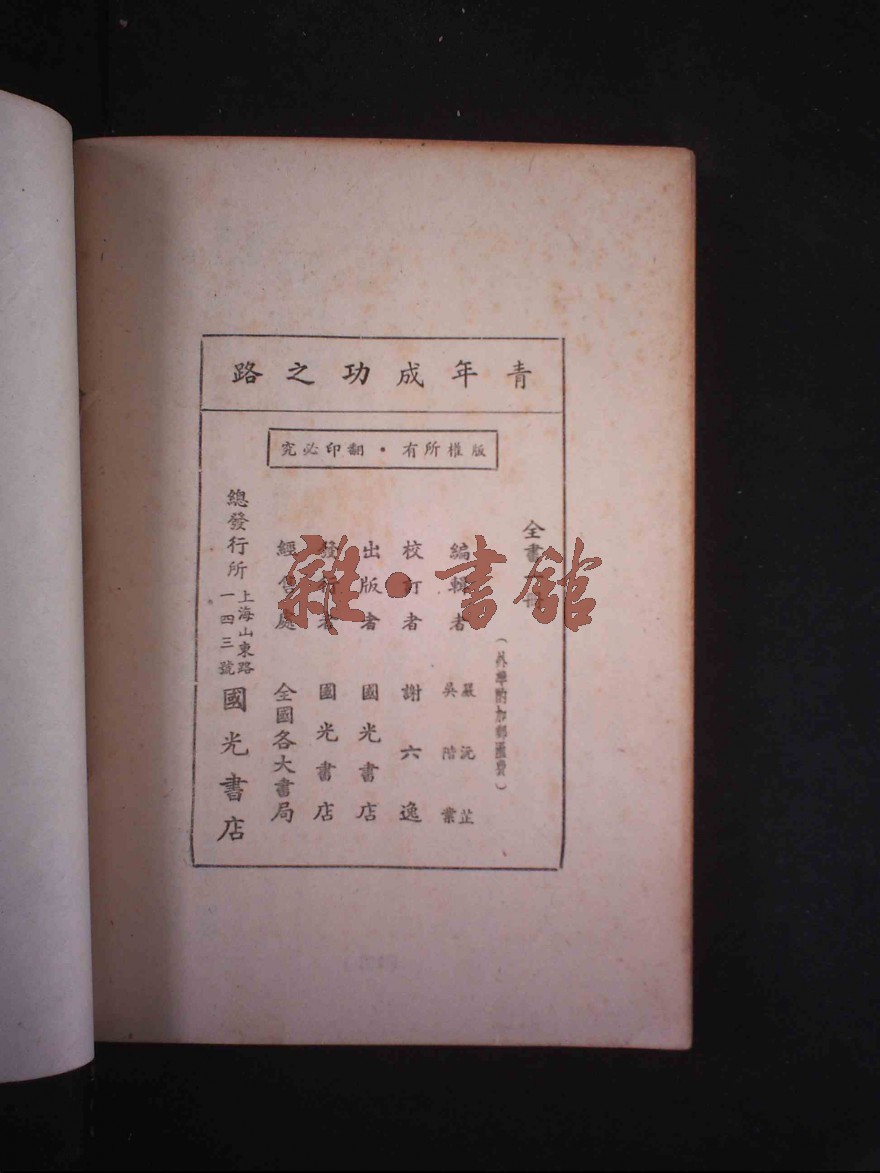 青年成功之路
版權所有·翻印必究
全書一册
(外埠酌加郵匯費)
編輯者 嚴沇芷 吳階業
校訂者 謝六逸
出版者 國光書店
發行者 國光書店
經售處 全國各大書局
總發行所 上海山東路一四三號 國光書店
雜·書館